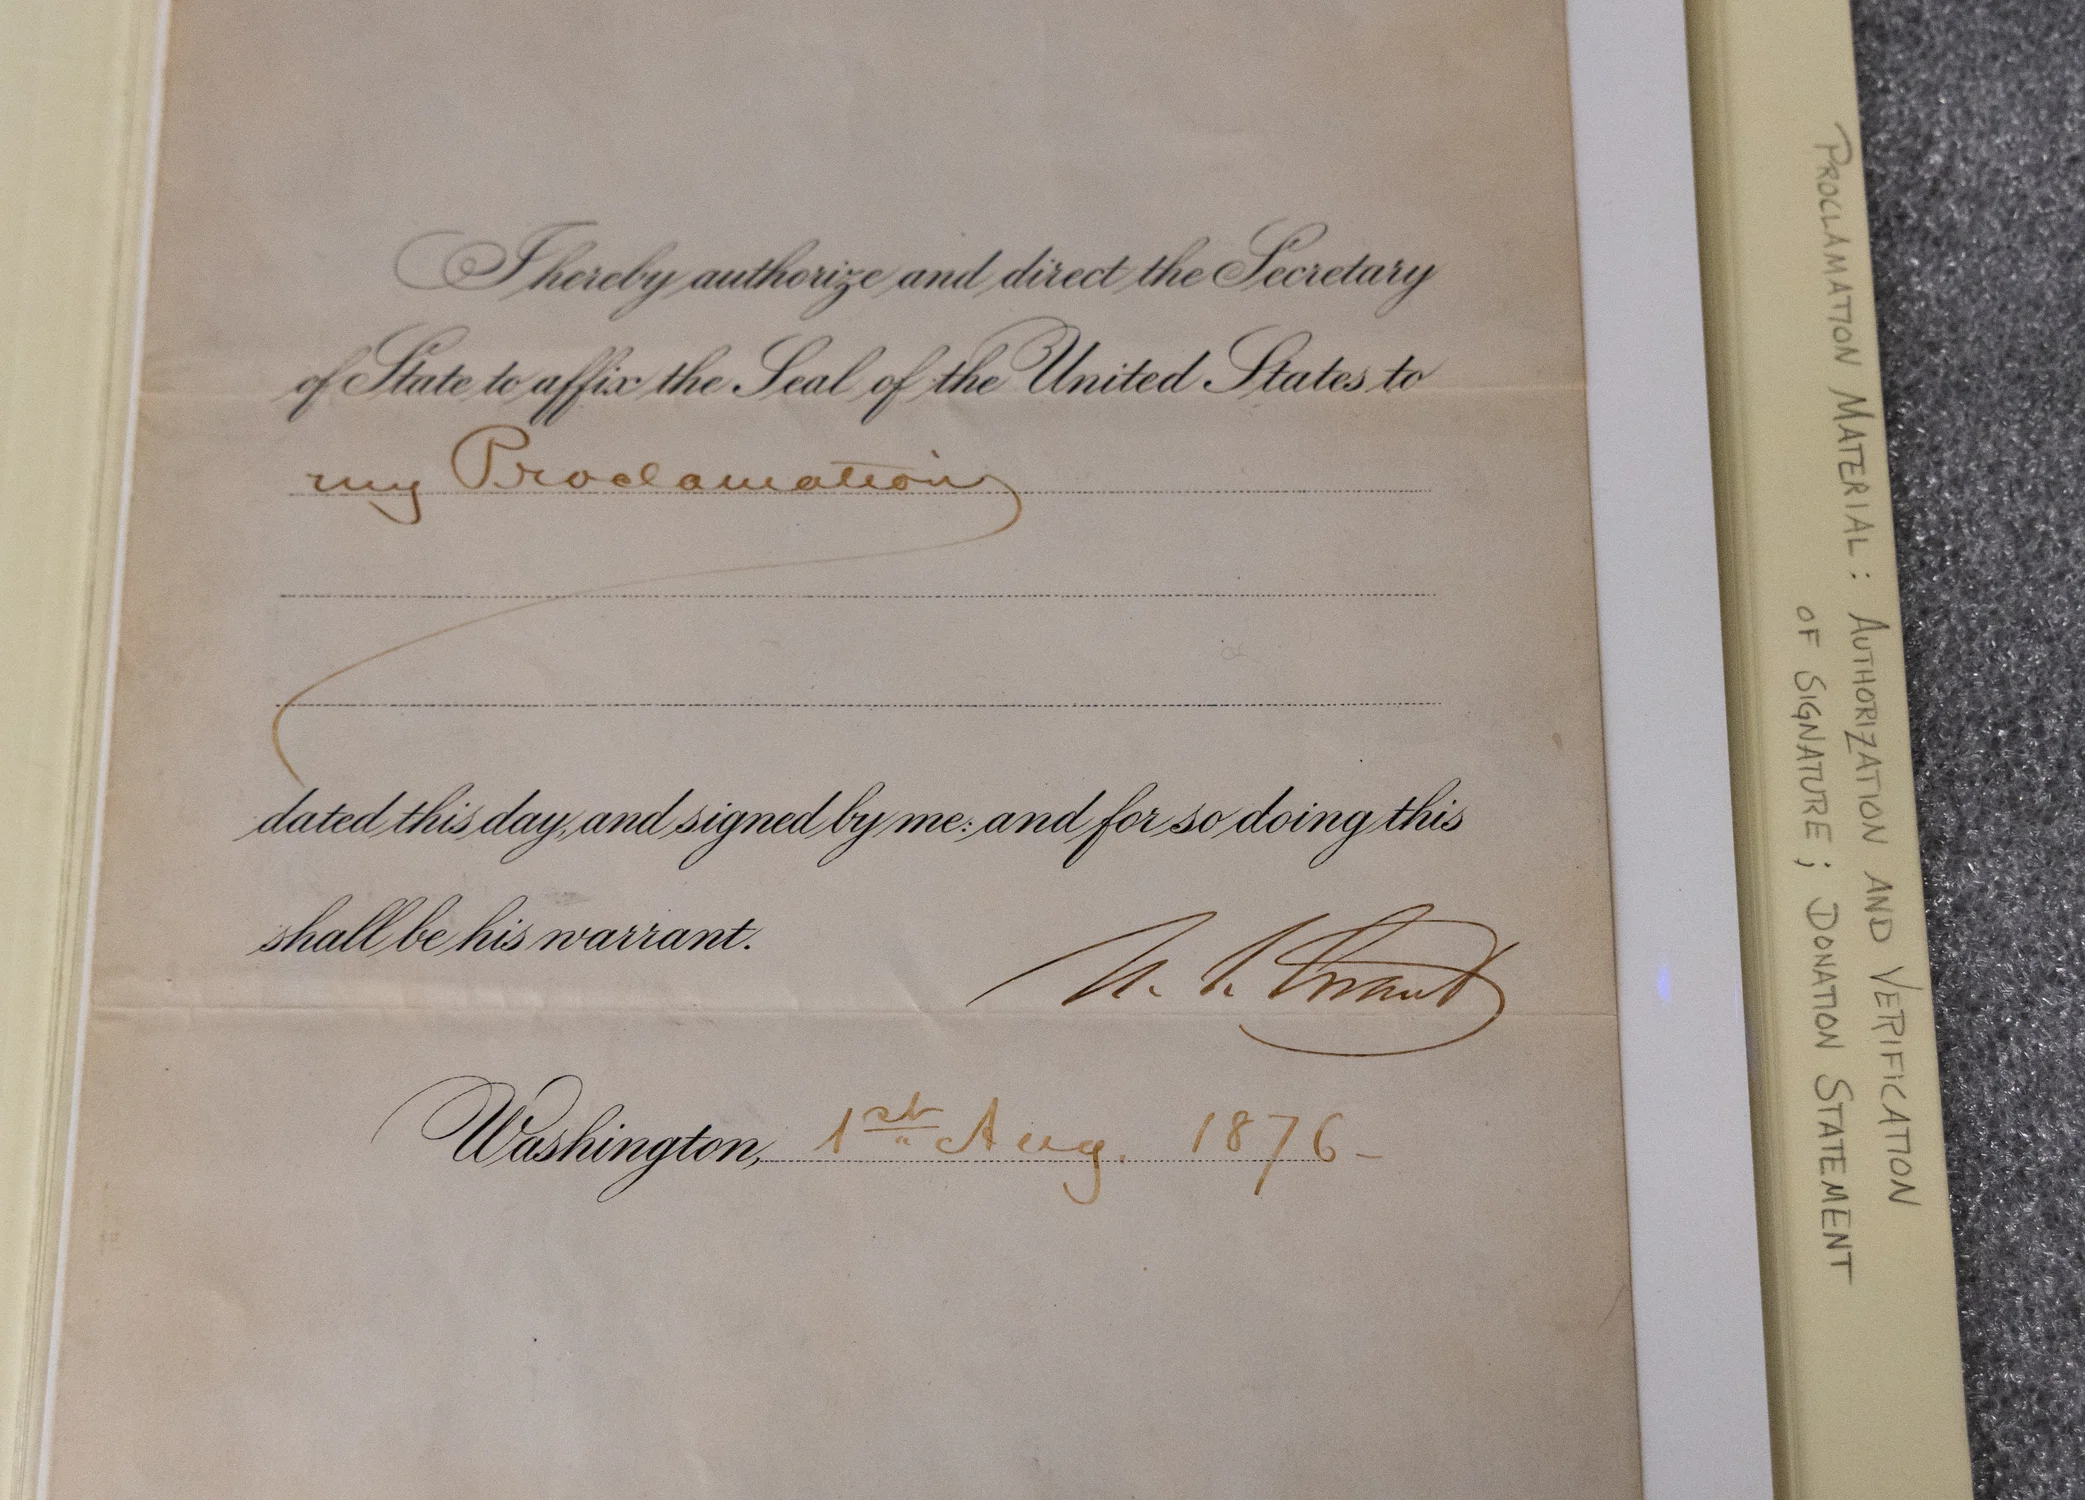 I hereby authorize and direct the Secretary
of State to affix the Seal of the United States to
my Proclamation
dated this day, and signed by me: and for so doing this
shall be his warrant.
U. S. Grant
Washington, 1st Aug. 1876-
PROCLAMATION MATERIAL: AUTHORIZATION AND VERIFICATION
OF SIGNATURE; DONATION STATEMENT